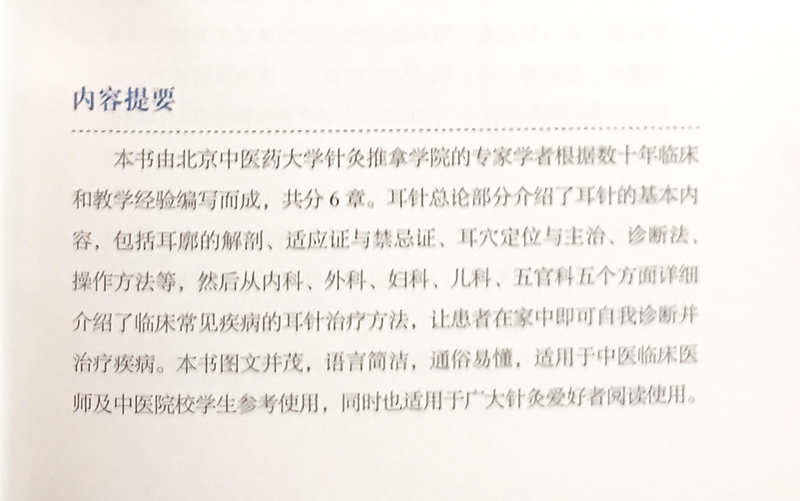 内容提要
本书由北京中医药大学针灸推拿学院的专家学者根据数十年临床
和教学经验编写而成，共分 6 章。耳针总论部分介绍了耳针的基本内
容，包括耳廓的解剖、适应证与禁忌证、耳穴定位与主治、诊断法、
操作方法等，然后从内科、外科、妇科、儿科、五官科五个方面详细
介绍了临床常见疾病的耳针治疗方法，让患者在家中即可自我诊断并
治疗疾病。本书图文并茂，语言简洁，通俗易懂，适用于中医临床医
师及中医院校学生参考使用，同时也适用于广大针灸爱好者阅读使用。